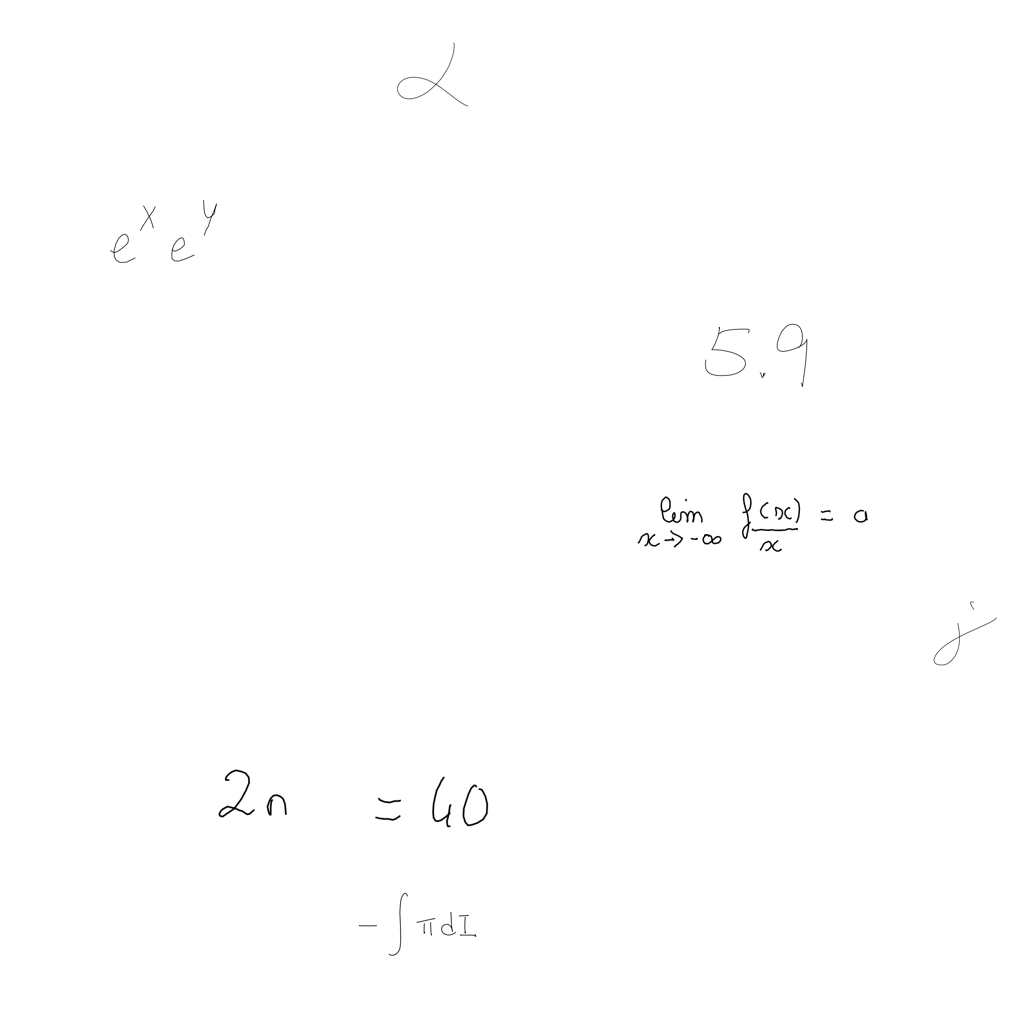 α
e^x e^y
5.9
lim_{x→-∞} f(x)/x = a
j
2n = 40
-∫πdI